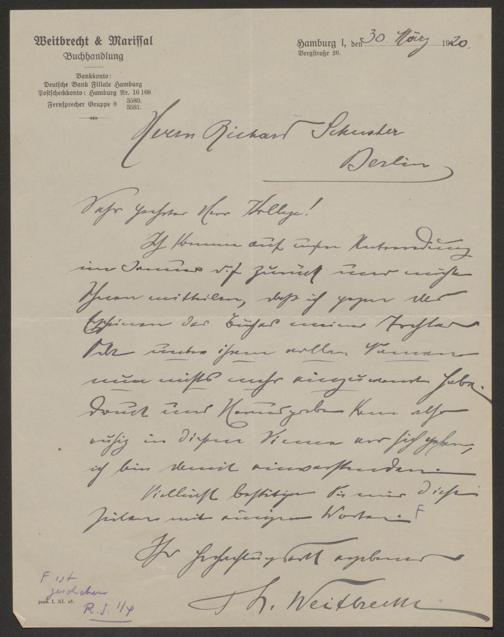 Weitbrecht & Marissal
Buchhandlung
Bankkonto:
Deutsche Bank Filiale Hamburg
Postscheckkonto: Hamburg Nr. 16 168
Fernsprecher Gruppe 8 3580. 3581.
Hamburg 1, den 30 März 1920.
Bergstraße 26.
Herrn Richard Schuster
Berlin
Sehr geehrter Herr Kollege!
Ich komme auf unsere Unterredung
im Januar d. J. zurück und möchte
Ihnen mitteilen, daß ich gegen das
Erscheinen des Buches meiner Tochter
unter ihrem vollen Namen
nun nichts mehr einzuwenden habe.
Druck und Herausgabe kann also
ruhig in diesem Sinne vor sich gehen,
ich bin damit einverstanden.
Vielleicht bestätigen Sie mir diese
Zeilen mit einigen Worten. F
Ihr hochachtungsvoll ergebener
Th. Weitbrecht
F ist
geschehen
R. S. 1/4